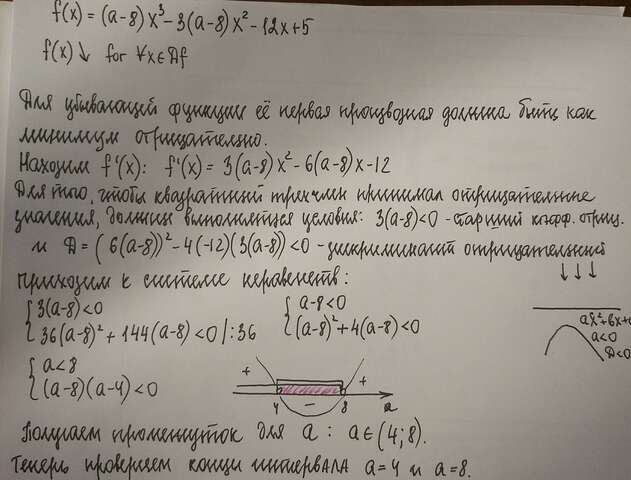 f(x) = (a-8)x³-3(a-8)x²-12x+5
f(x)↓ for ∀x∈Df
Для убывающей функции её первая производная должна быть как
минимум отрицательно.
Находим f'(x): f'(x) = 3(a-8)x²-6(a-8)x-12
Для того, чтобы квадратный трёхчлен принимал отрицательные
значения, должны выполняться условия: 3(a-8)<0 - старший коэфф. отриц.
и D = (6(a-8))²-4(-12)(3(a-8)<0 - дискриминант отрицательный
↓↓↓
приходим к системе неравенств:
{3(a-8)<0
{36(a-8)²+144(a-8)<0 |:36
{a-8<0
{(a-8)²+4(a-8)<0
ax²+bx+c
a<0
D<0
{a<8
{(a-8)(a-4)<0
+ - +
4 8 a
Получаем промежуток для a: a∈(4;8).
Теперь проверяем концы интервала a=4 и a=8.